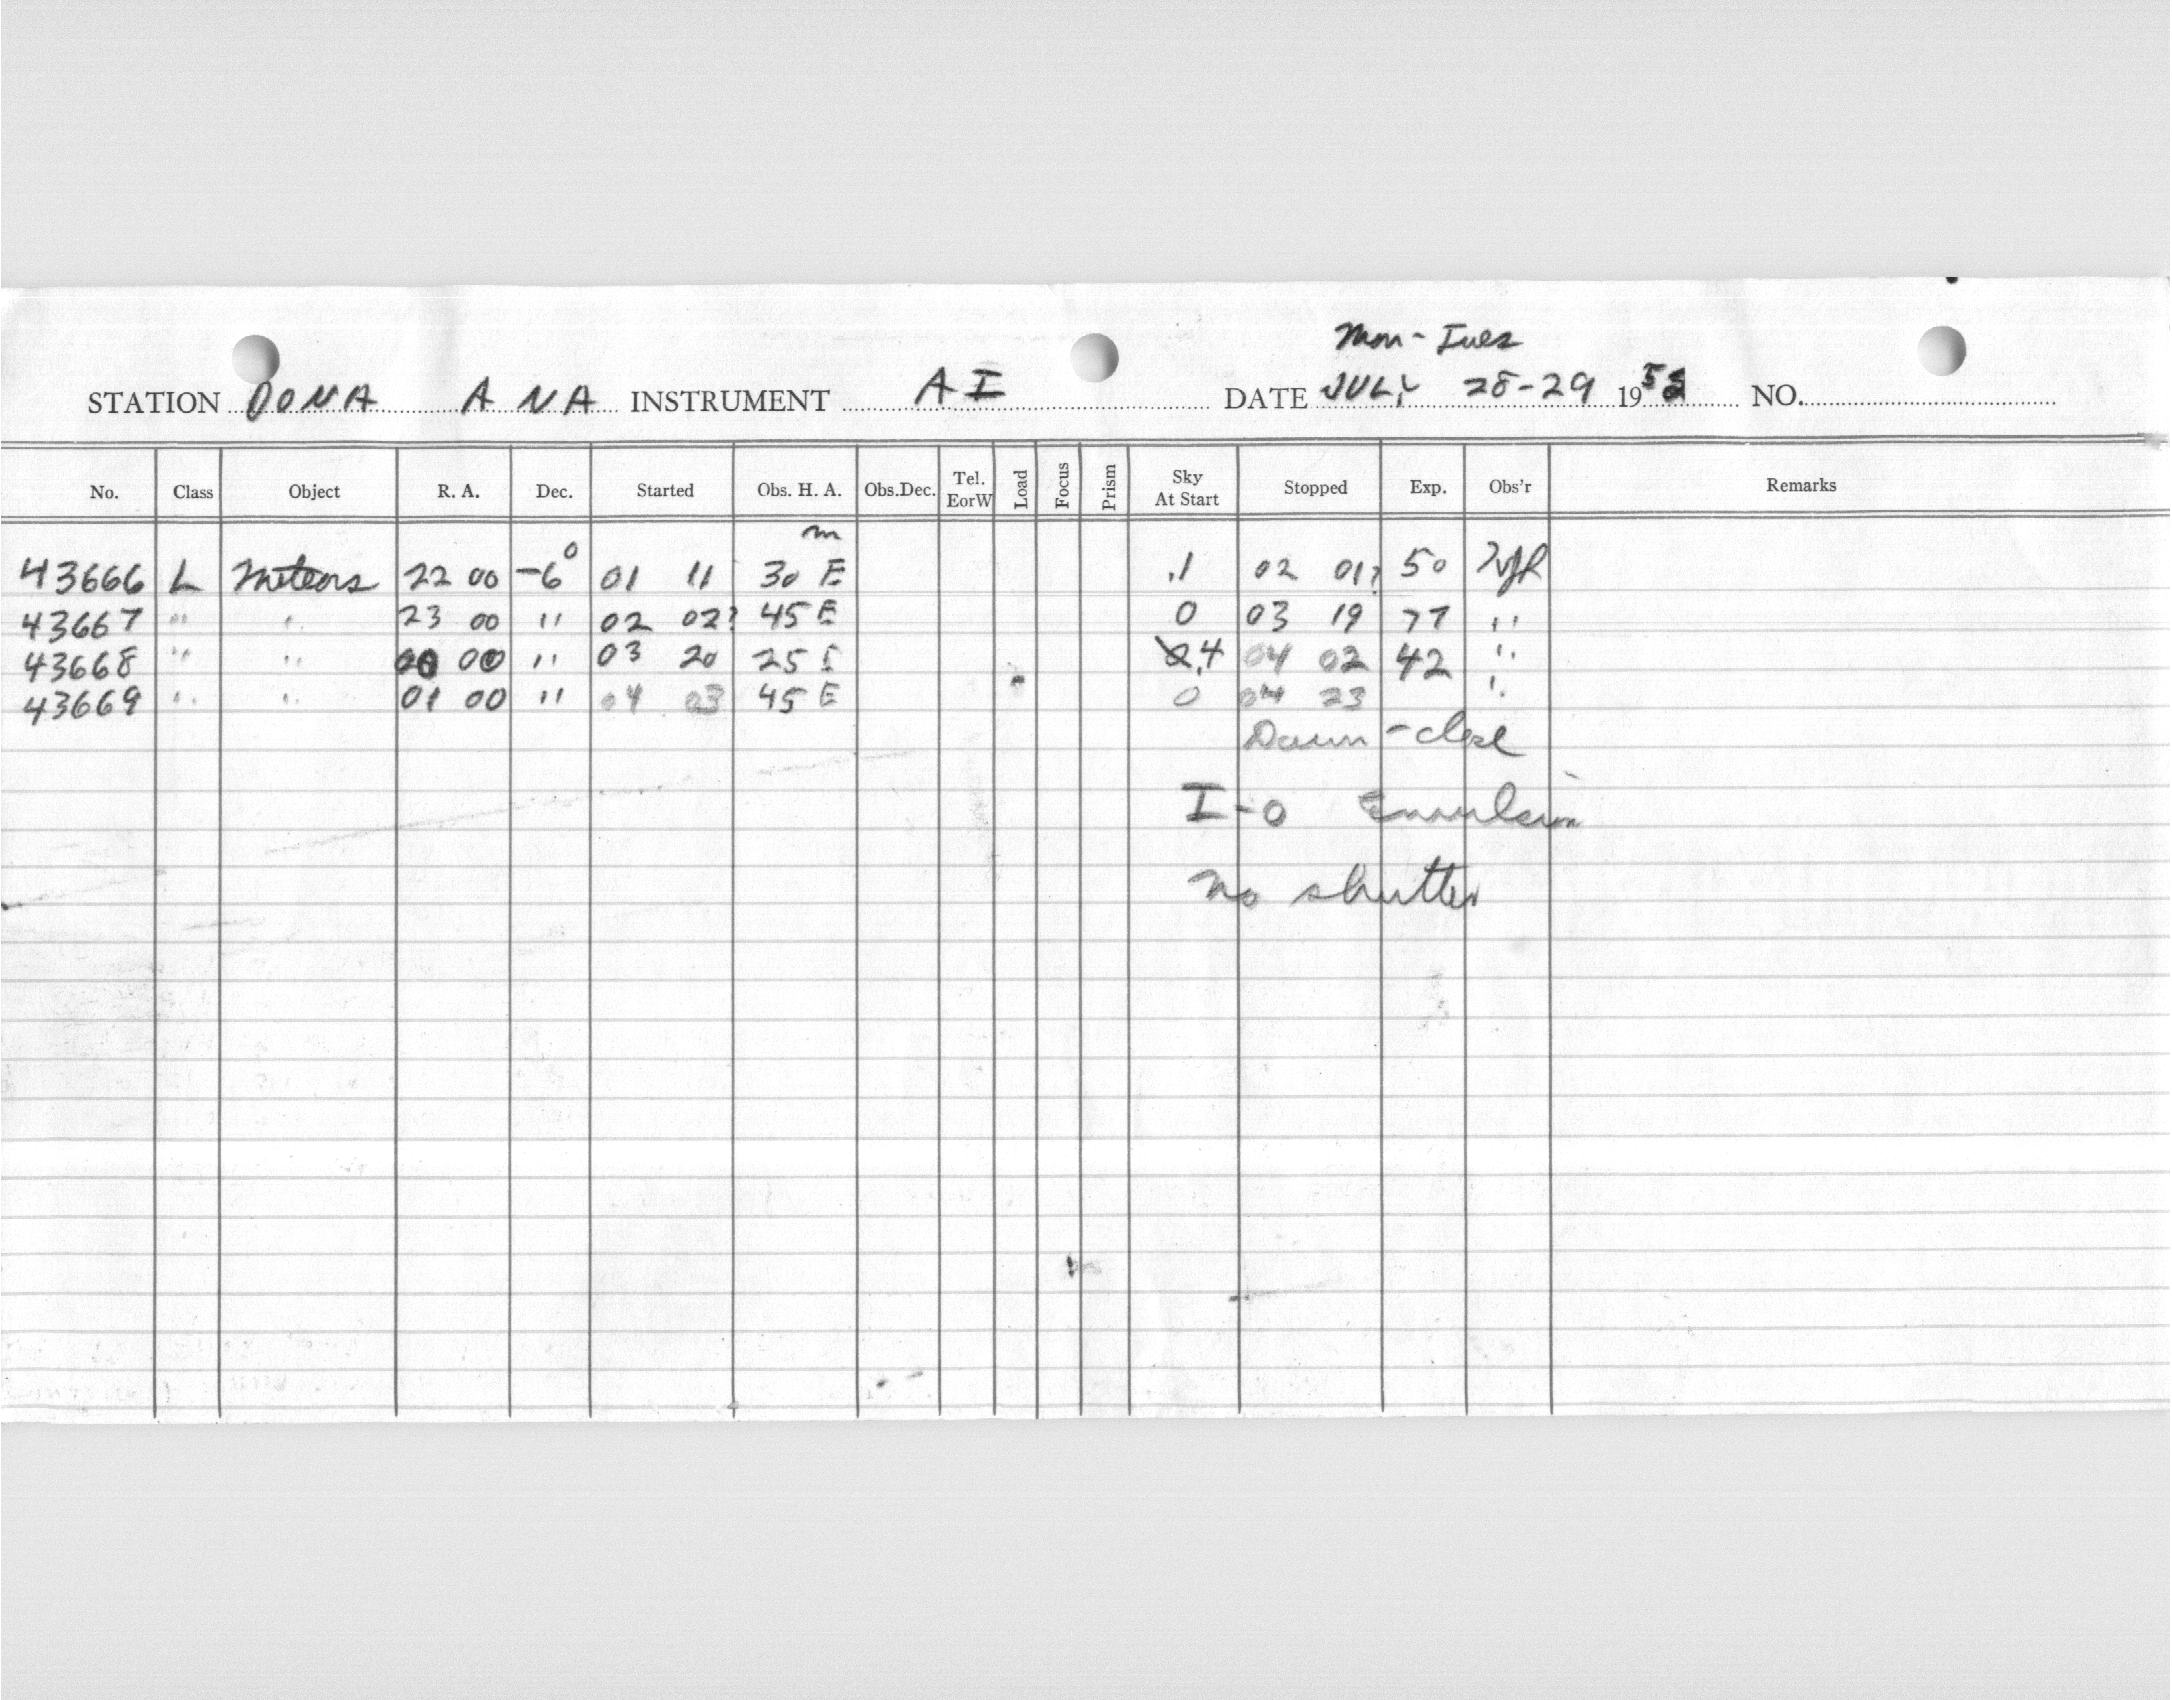 Mon - Tues
STATION DONA ANA INSTRUMENT AI DATE JULY 28-29 1952 NO.
No. Class Object R. A. Dec. Started Obs. H. A. Obs.Dec. Tel. EorW Load Focus Prism Sky At Start Stopped Exp. Obs'r Remarks
43666 L Meteors 22 00 -6° 01 11 30 m E .1 02 01? 50
43667 " " 23 00 " 02 02? 45 E 0 03 19 77 "
43668 " " 00 00 " 03 20 25 E .4 04 02 42 "
43669 " " 01 00 " 04 03 45 E 0 04 23 "
Dawn - close
I-O Emulsion
No shutter